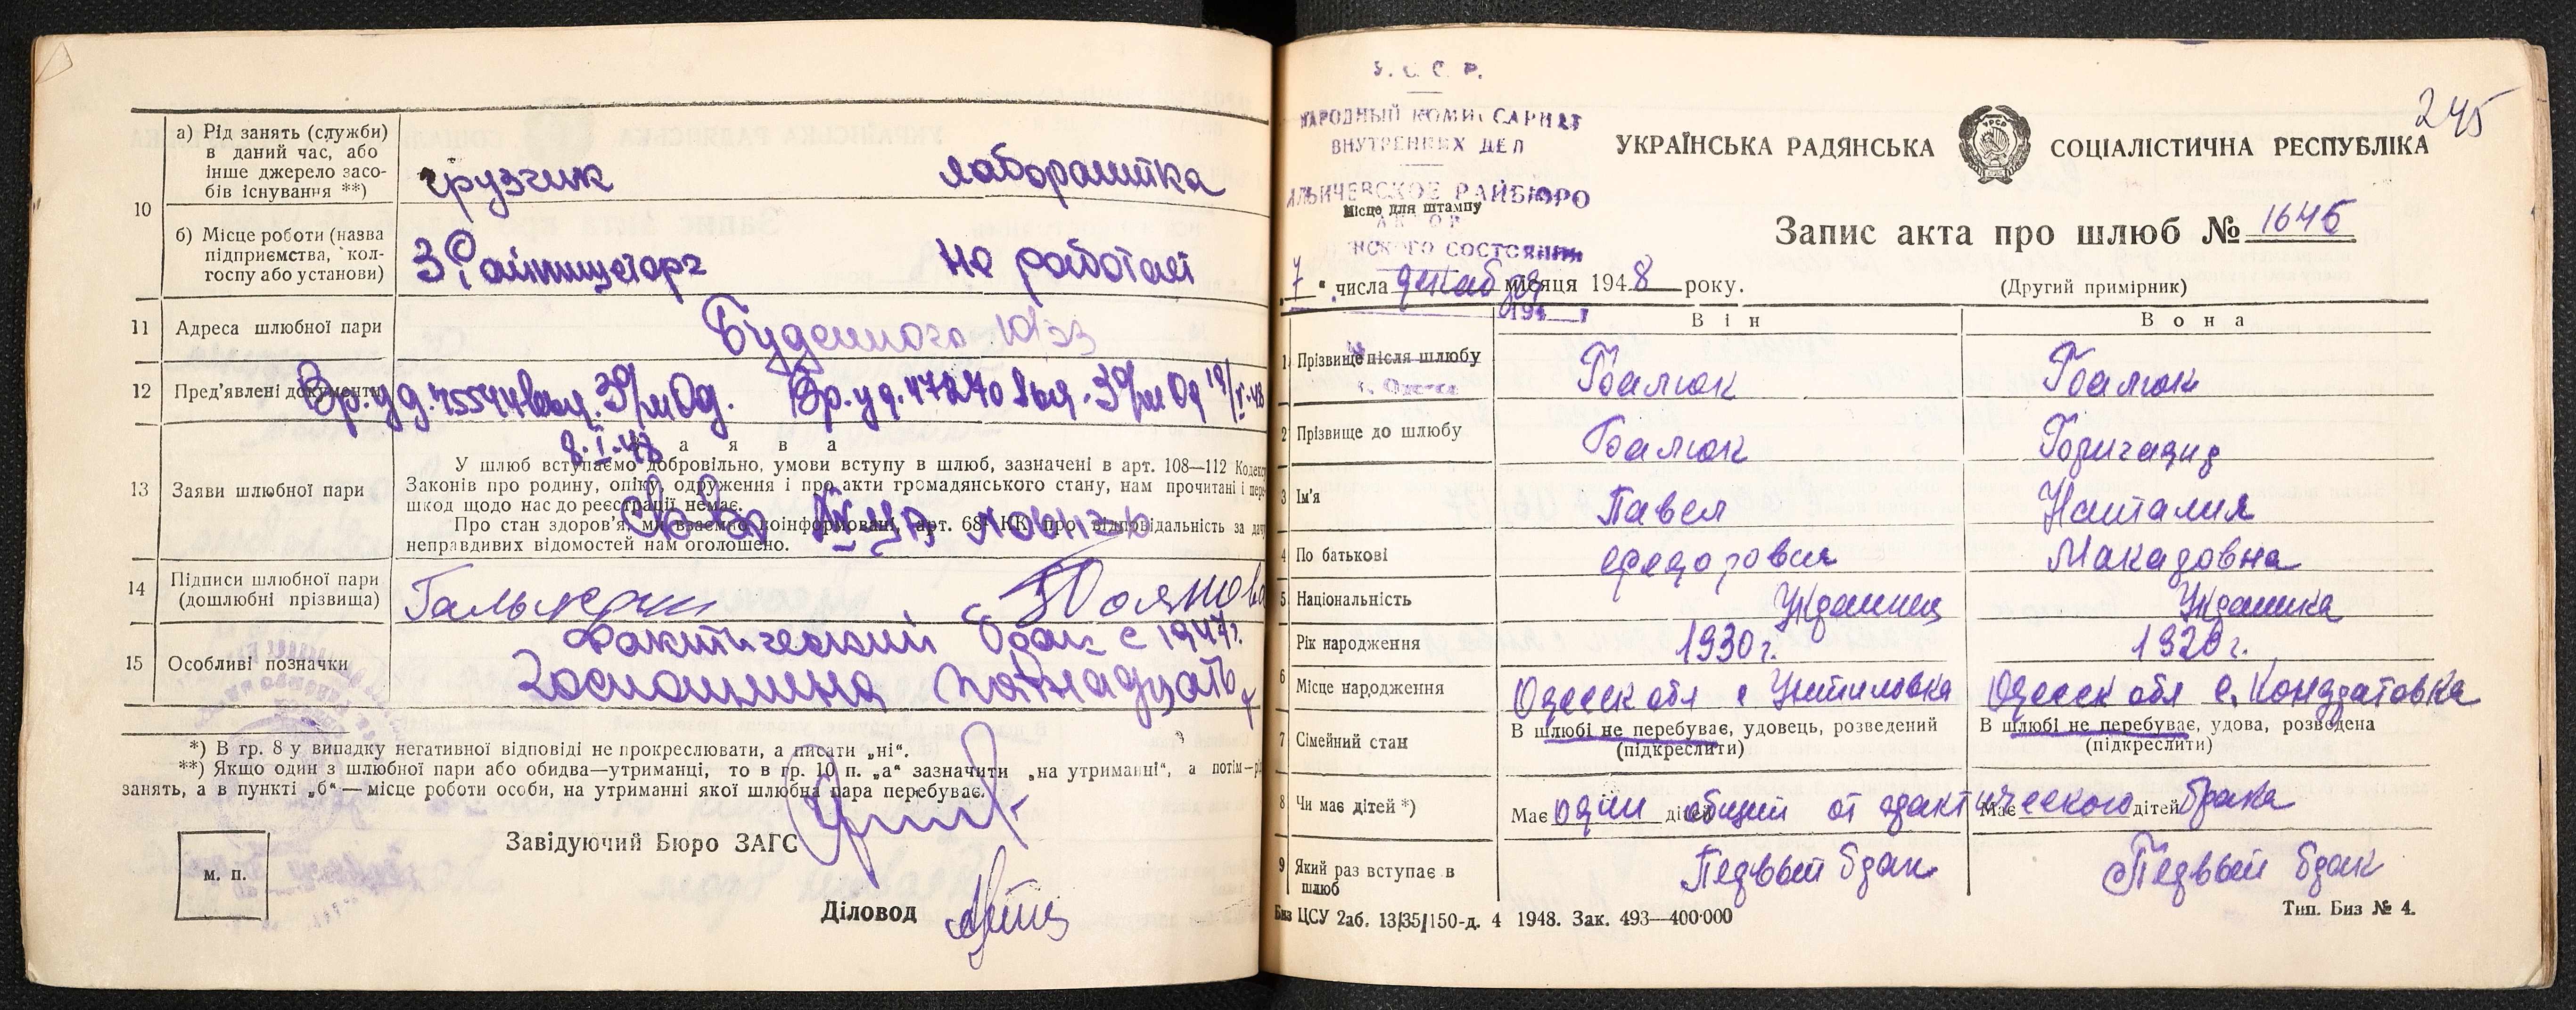 а) Рід занять (служби)
в даний час, або
інше джерело засо-
бів існування **)
грузчик лаборантка
10
б) Місце роботи (назва
підприємства, кол-
госпу або установи)
не работает
11 Адреса шлюбної пари
Буденного
12 Пред'явлені документи
8.I.48
Заява
13 Заяви шлюбної пари
У шлюб вступаємо добровільно, умови вступу в шлюб, зазначені в арт. 108—112 Кодексу
Законів про родину, опіку, одруження і про акти громадянського стану, нам прочитані і пере-
шкод щодо нас до реєстрації немає.
Про стан здоров'я, ми взаємно поінформовані, арт. 68¹ КК про відповідальність за дачу
неправдивих відомостей нам оголошено.
14 Підписи шлюбної пари
(дошлюбні прізвища)
15 Особливі позначки
фактический брак с 1947г.
Госпошлина пятнадцать
*) В гр. 8 у випадку негативної відповіді не прокреслювати, а писати „ні“.
**) Якщо один з шлюбної пари або обидва—утриманці, то в гр. 10 п. „а“ зазначити „на утриманні“, а потім—рід
занять, а в пункті „б“ — місце роботи особи, на утриманні якої шлюбна пара перебуває.
Завідуючий Бюро ЗАГС
м. п.
Діловод
245
У. С. С. Р.
НАРОДНЫЙ КОМИССАРИАТ
ВНУТРЕННИХ ДЕЛ
ИЛЬИЧЕВСКОЕ РАЙБЮРО
Місце для штампу
АКТОВ
СОСТОЯНИЯ
УКРАЇНСЬКА РАДЯНСЬКА СОЦІАЛІСТИЧНА РЕСПУБЛІКА
УРСР
Запис акта про шлюб № 1645
„7“ числа декабря місяця 1948 року.
(Другий примірник)
194 г
г. Одесса
Він Вона
1 Прізвище після шлюбу Балюк Балюк
2 Прізвище до шлюбу Балюк
3 Ім'я Павел Наталия
4 По батькові Федорович Макаровна
5 Національність Украинец Украинка
Рік народження 1930г. 1920г.
6 Місце народження Одесск обл с Одесск обл с. Кондратовка
7 Сімейний стан
В шлюбі не перебуває, удовець, розведений
(підкреслити)
В шлюбі не перебуває, удова, розведена
(підкреслити)
8 Чи має дітей *)
Має один дітей общий от фактического брака
Має дітей
9 Який раз вступає в
шлюб
Первый брак Первый брак
Биз ЦСУ 2аб. 13/35/150-д. 4 1948. Зак. 493—400·000
Тип. Биз № 4.